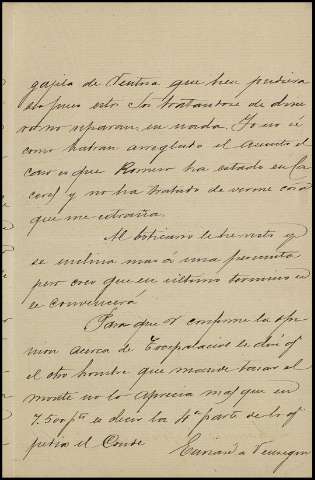 de Ventosa que bien pudiera
pues estos Sres tratandose de dine
ro no reparan en nada. Yo no sé
como habran arreglado el asunto el
caso es que Romero ha estado en Ca
ceres y no ha tratado de verme cosa
que me extraña.
Al boticario le he visto y
se inclina mas á una permuta
pero creo que en ultimo termino
se convencerá
Para que V confirme la opi
nion acerca de Torrepalacios le diré q
el otro hombre que mandé tasar el
monte no lo aprecia mas que en
7.500 pts es decir la 4ª parte de lo q
pedia el Conde